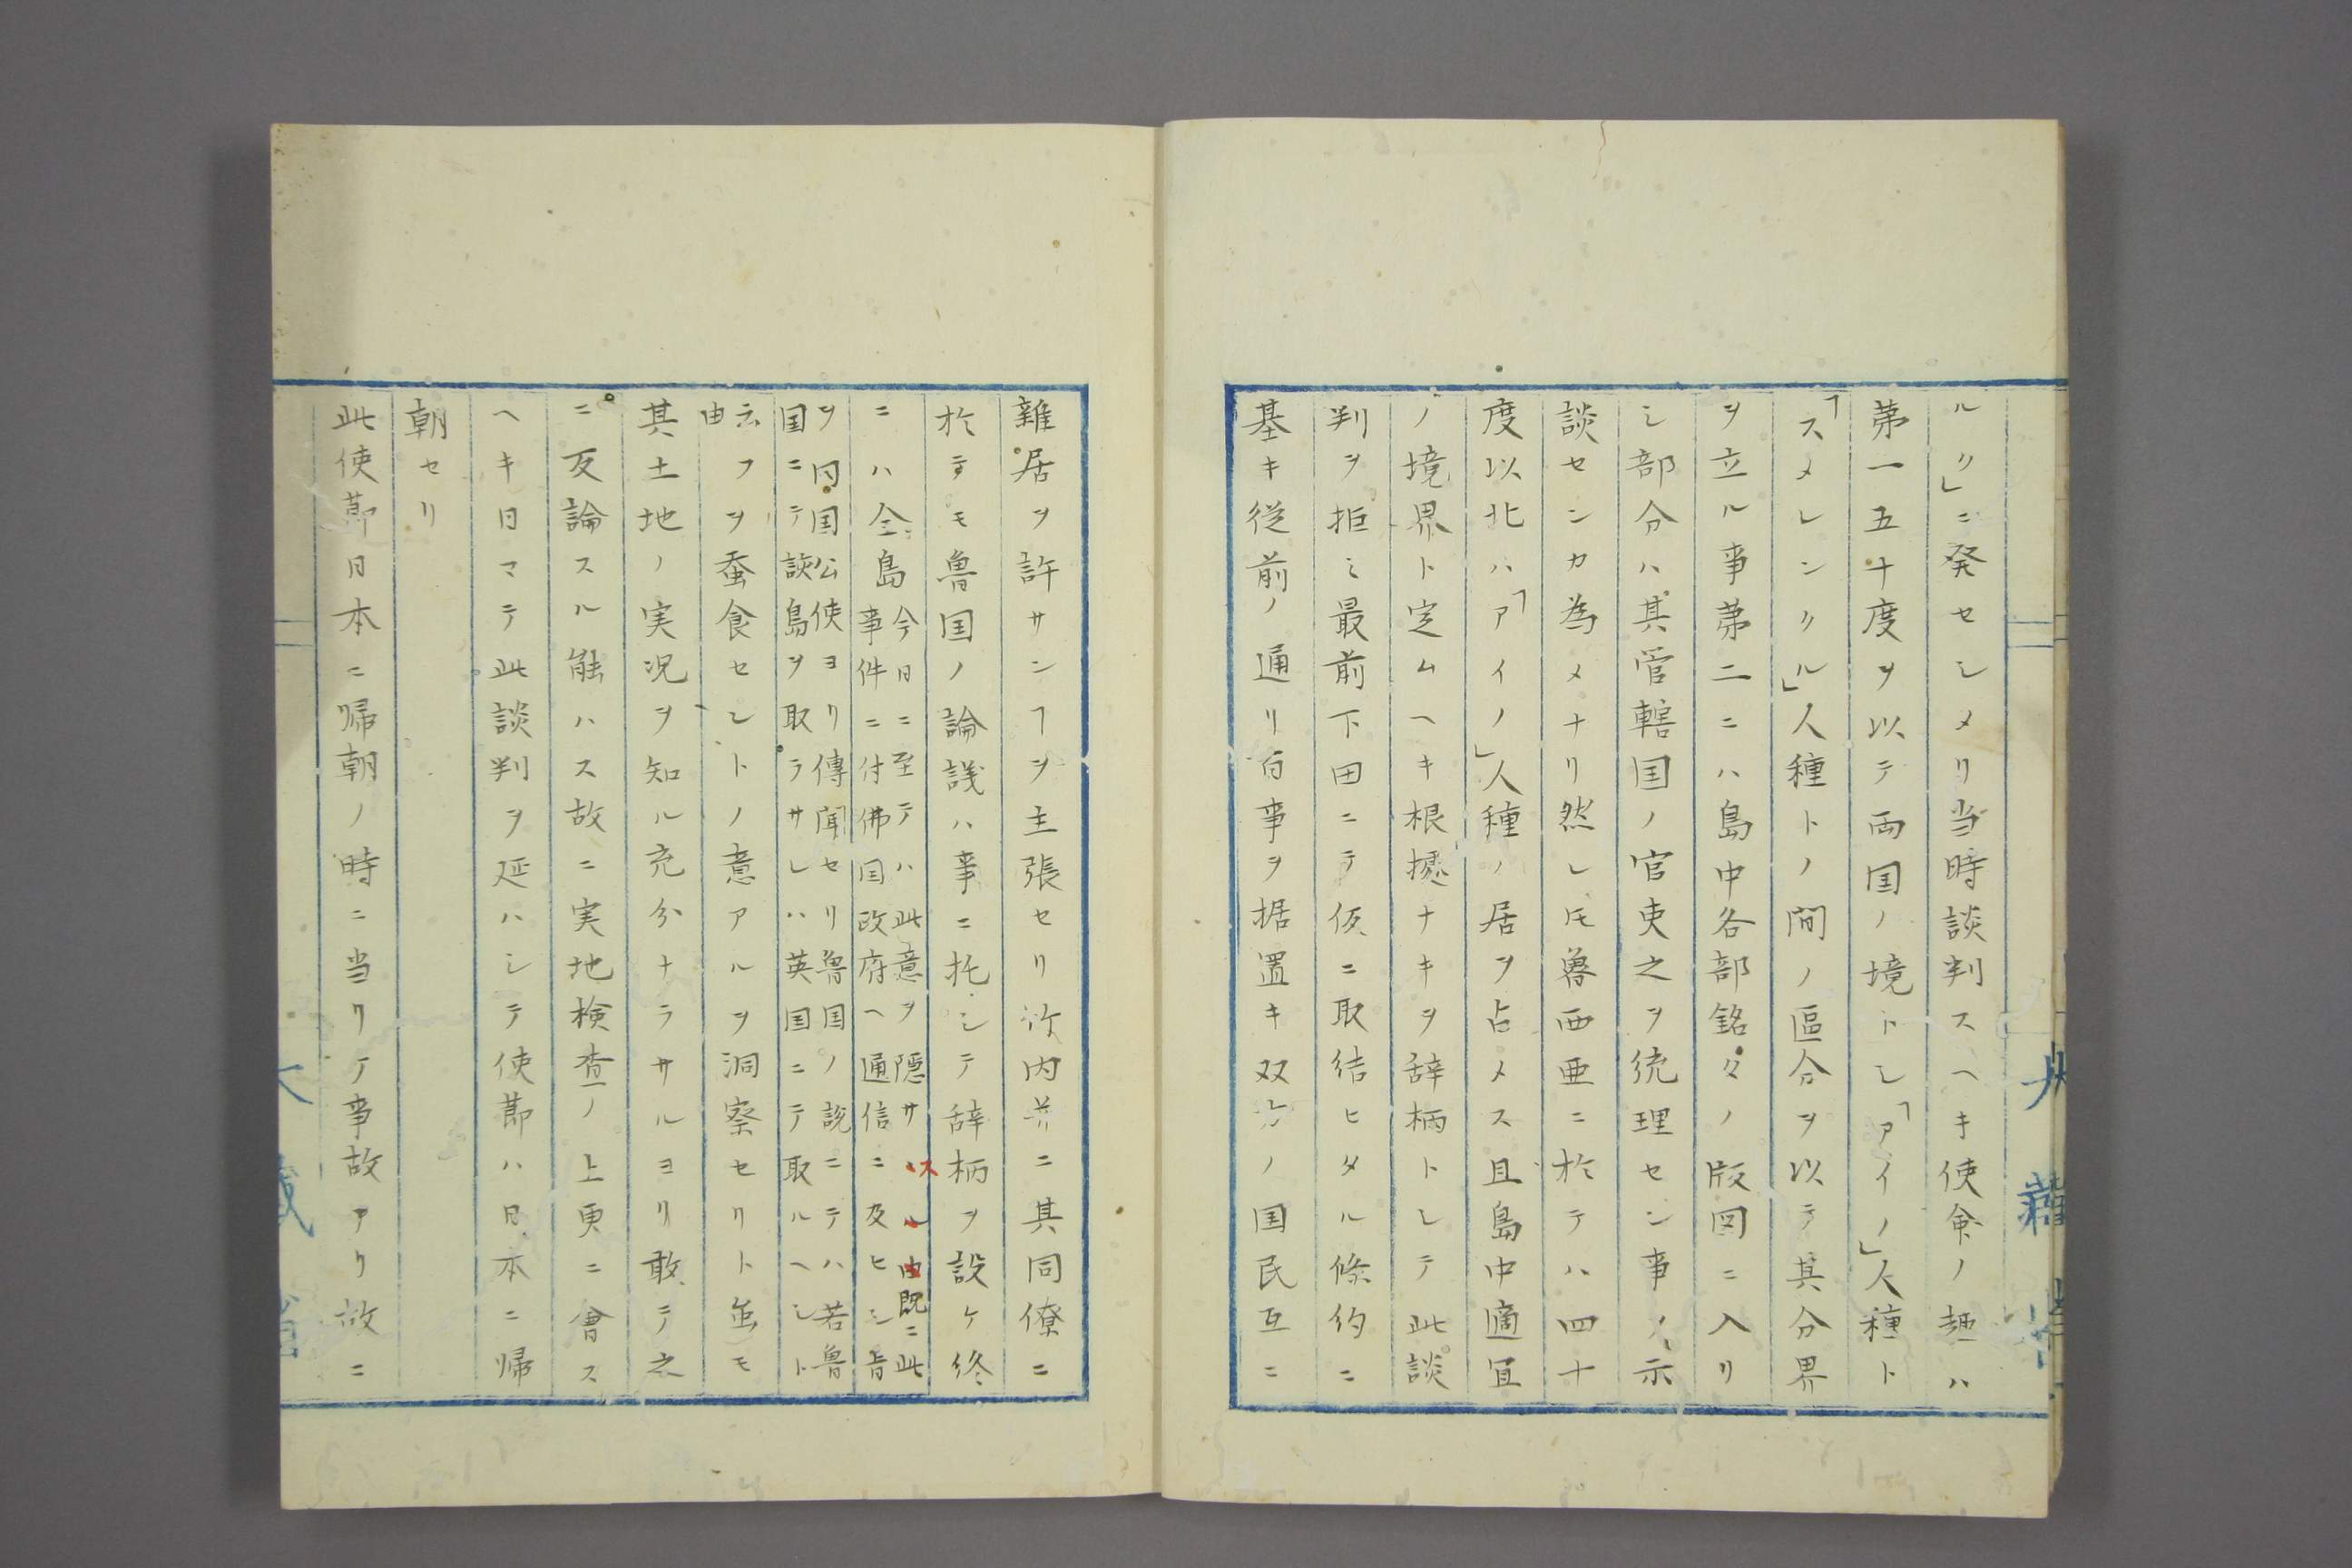 ルク」ニ発セシメリ当時談判スヘキ使命ノ趣ハ
第一五十度ヲ以テ両国ノ境トシ「アイノ」人種ト
「スメレンクル」人種トノ間ノ區分ヲ以テ其分界
ヲ立ル事第二ニハ島中各部銘々ノ版図ニ入リ
シ部分ハ其管轄国ノ官吏之ヲ統理セン事ノ示
談センカ為メナリ然レ𪜈魯西亜ニ於テハ四十
度以北ハ「アイノ」人種ノ居ヲ占メス且島中適宜
ノ境界ト定ムヘキ根據ナキヲ辞柄トシテ此談
判ヲ拒ミ最前下田ニテ仮ニ取結ヒタル條約ニ
基キ従前ノ通リ百事ヲ据置キ双方ノ国民互ニ
雜居ヲ許サンヿヲ主張セリ竹内并ニ其同僚ニ
於テモ魯国ノ論議ハ事ニ托シテ辞柄ヲ設ケ終
ニハ全島
今日ニ至テハ此意ヲ隠サス
ル由既ニ此
事件ニ付佛国政府ヘ通信ニ及ヒシ旨
ヲ同国公使ヨリ傳聞セリ魯国ノ説ニテハ若魯
国ニテ該島ヲ取ラサレハ英国ニテ取ルヘシト
云フ
由
ヲ蚕食セントノ意アルヲ洞察セリト虽モ
其土地ノ実况ヲ知ル充分ナラサルヨリ敢テ之
ニ反論スル能ハス故ニ実地検査ノ上更ニ會ス
ヘキ日マテ此談判ヲ延ハシテ使節ハ日本ニ帰
朝セリ
此使節日本ニ帰朝ノ時ニ当リテ事故アリ故ニ
大藏省